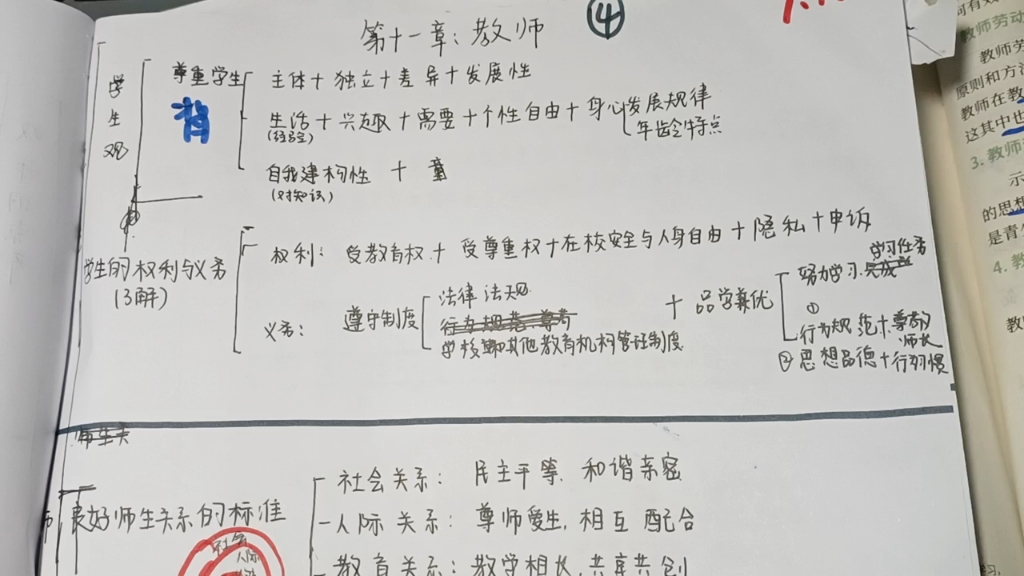 第十一章：教师
④
学生观
尊重学生
背
主体＋独立＋差异＋发展性
生活＋兴趣＋需要＋个性自由＋身心发展规律
(经验)
年龄特点
自我建构性 ＋ 童
(对知识)
学生的权利与义务
(了解)
权利：受教育权＋受尊重权＋在校安全与人身自由＋隐私＋申诉
义务：遵守制度
法律法规
行为规范 尊者
学校和其他教育机构管理制度
＋ 品学兼优
努力学习
学习任务
完成
①
行为规范＋尊敬师长
②思想品德＋行习惯
师生关
良好师生关系的标准
社会关系：民主平等，和谐亲密
人际关系：尊师爱生，相互配合
教育关系：教学相长，共享共创
社会
人际
教师劳动
教师劳
原则和方法
教师在教
这其中也
3. 教师
示
的思想
是青
4. 教